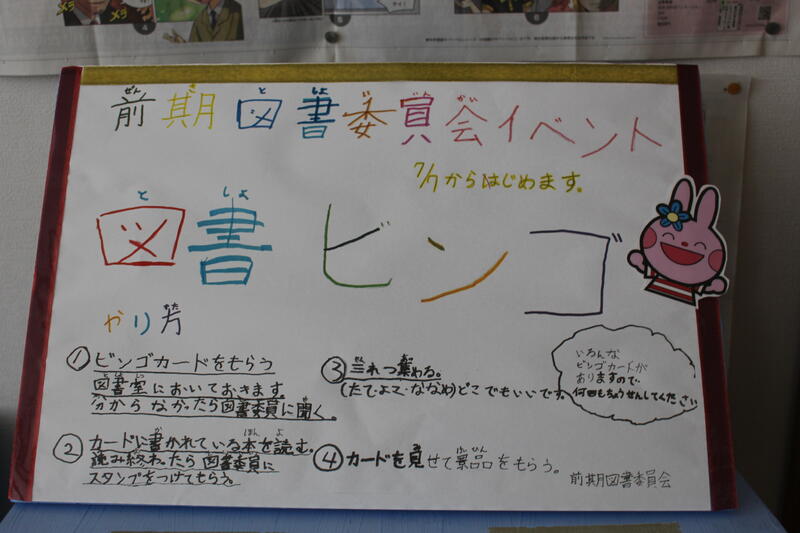 前期図書委員会イベント
7/7からはじめます。
図書ビンゴ
やり方
①ビンゴカードをもらう
図書室においておきます。
分からなかったら図書委員に聞く。
②カードに書かれている本を読む。
読み終わったら図書委員に
スタンプをつけてもらう。
③三れつ集める。
(たて・よこ・ななめ)どこでもいいです。
④カードを見せて景品をもらう。
いろんな
ビンゴカードが
ありますので、
何回もちょうせんしてください
前期図書委員会